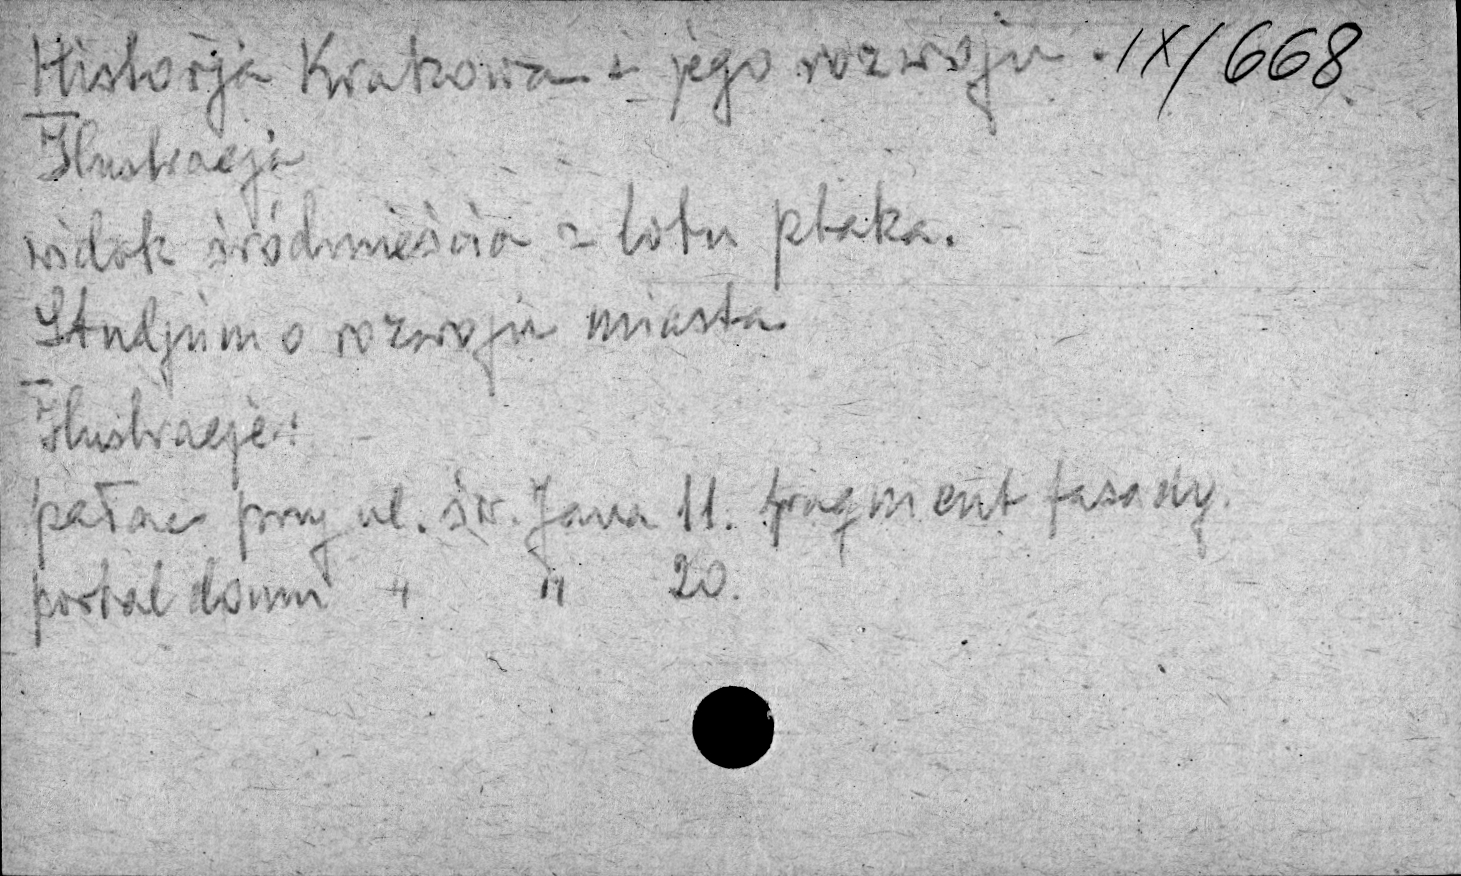 Historja Krakowa i jego rozwoju. IX/668
Ilustracja
widok śródmieścia z lotu ptaka.
Studjum o rozwoju miasta
Ilustracje:
pałac przy ul. św. Jana 11. fragment fasady.
portal domu " " 20.